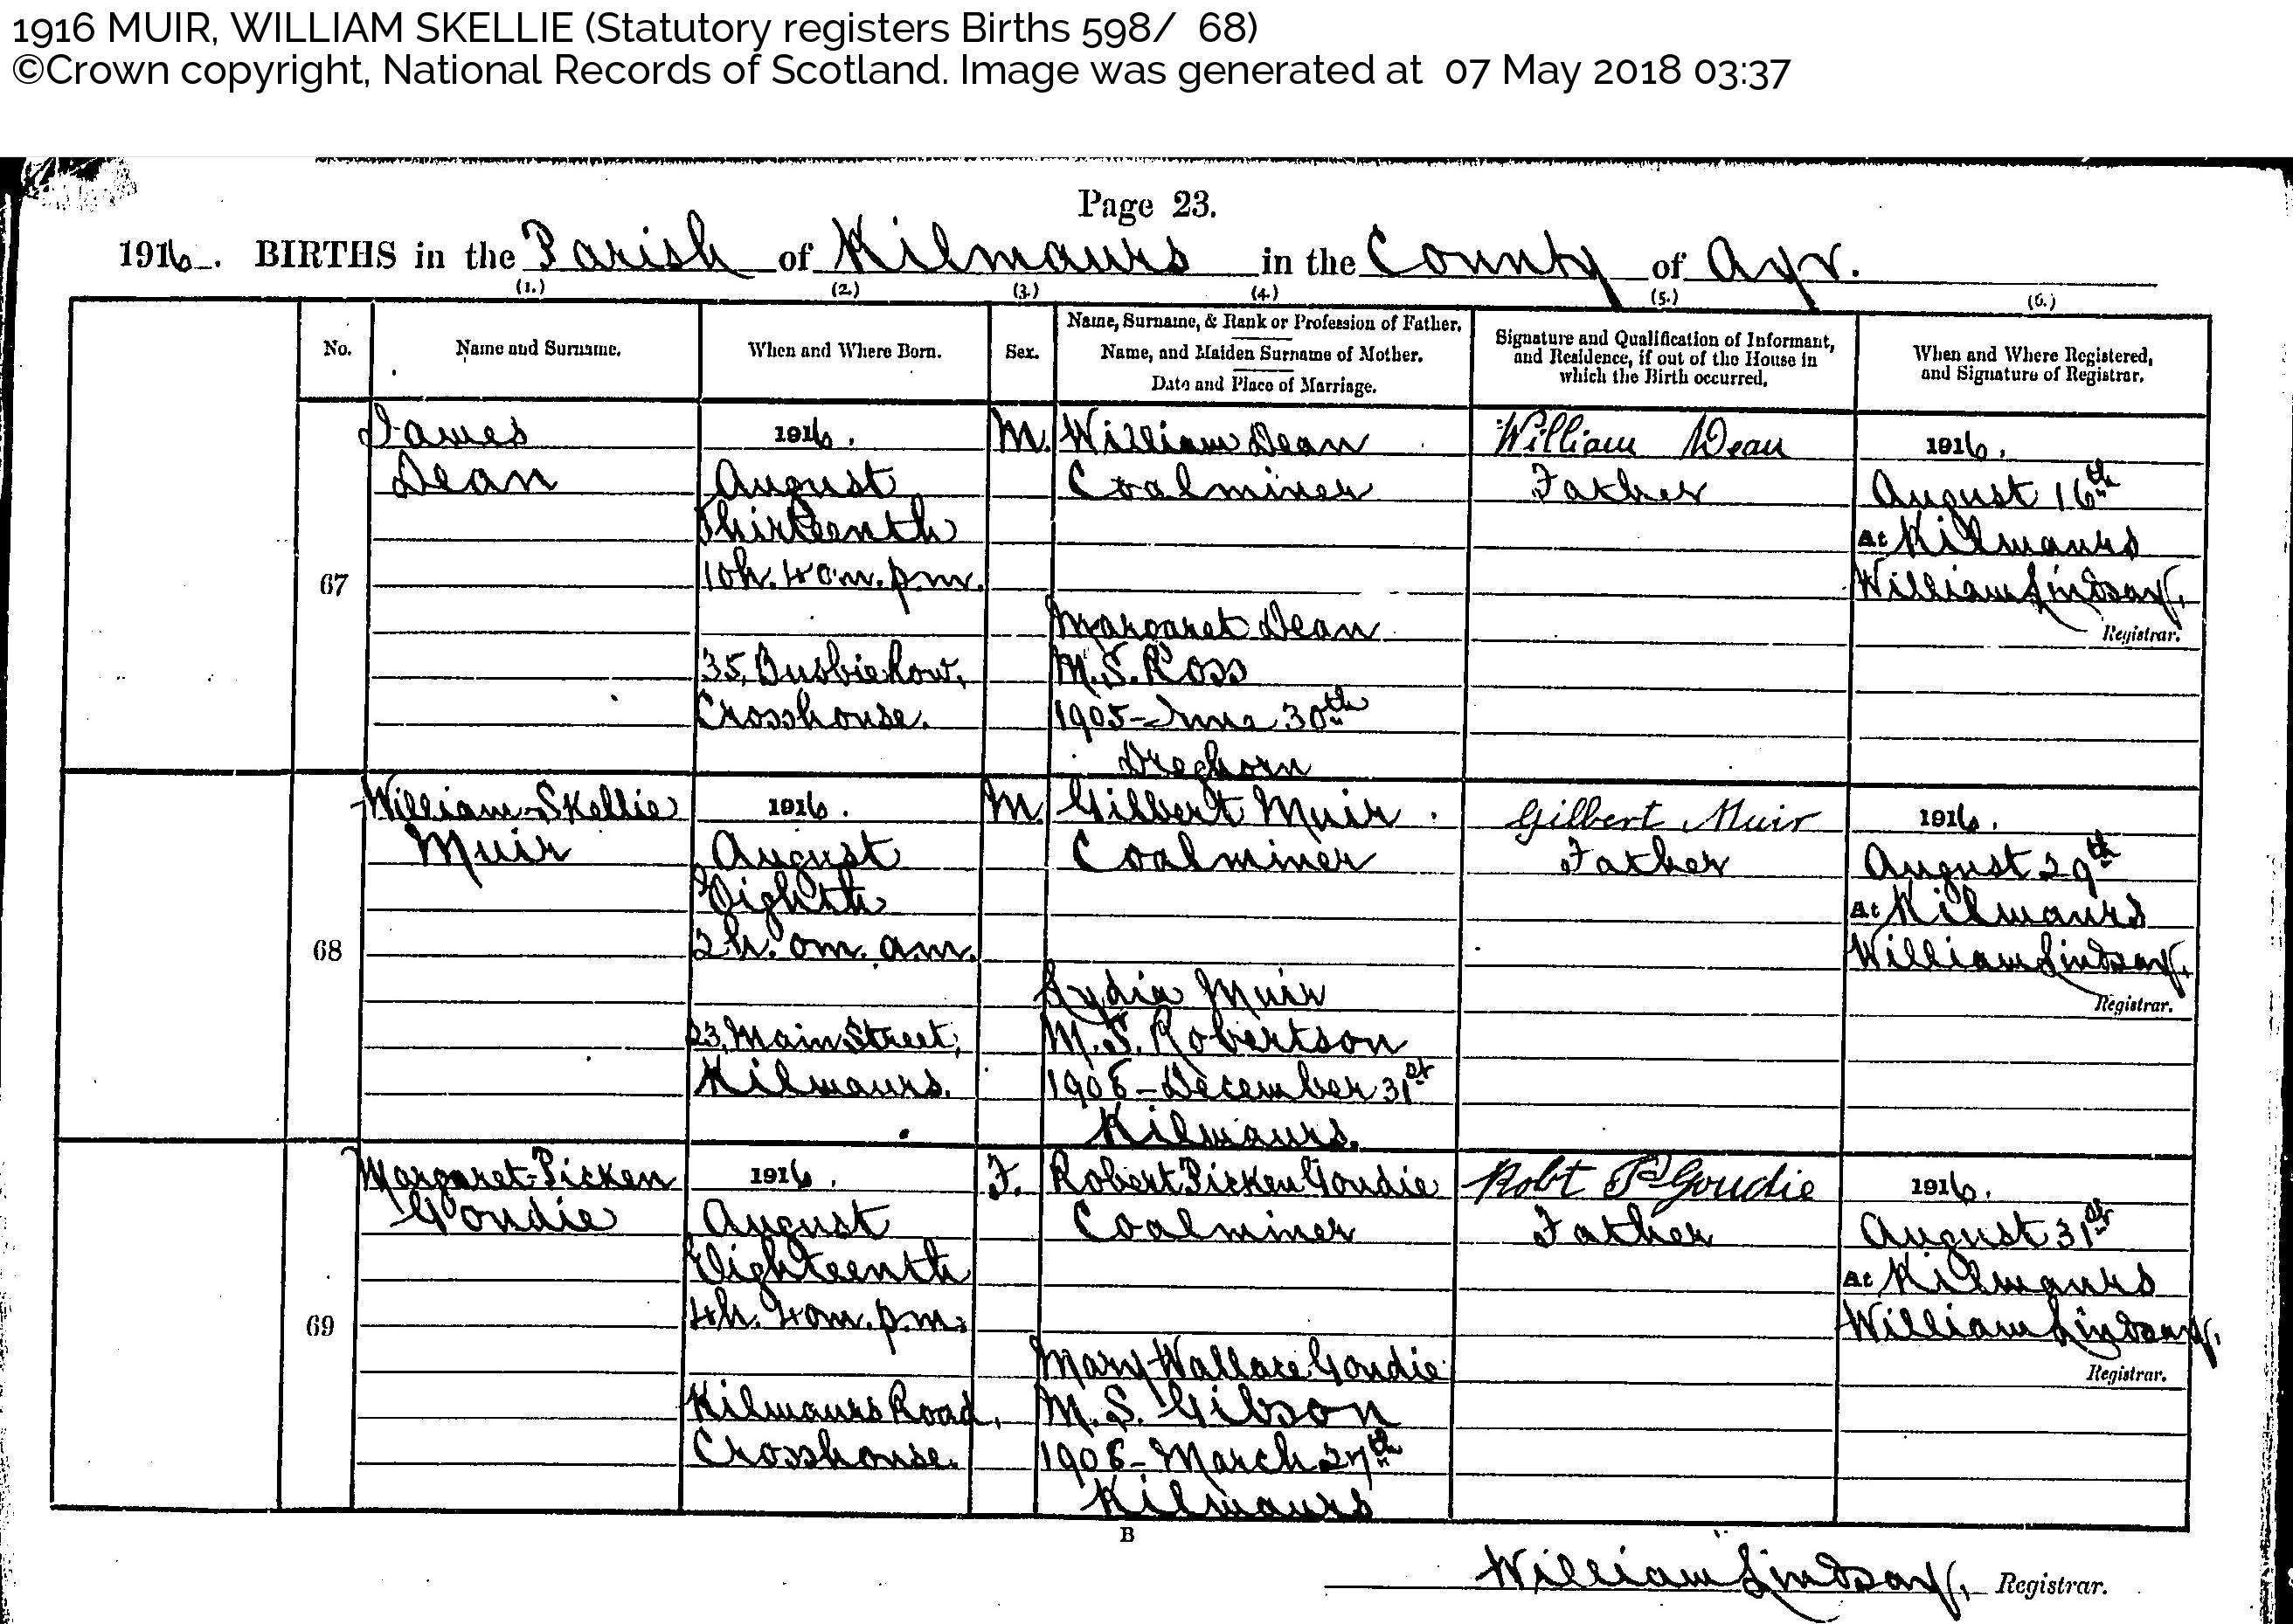 1916 MUIR, WILLIAM SKELLIE (Statutory registers Births 598/ 68)
©Crown copyright, National Records of Scotland. Image was generated at 07 May 2018 03:37
Page 23.
1916. BIRTHS in the Parish of Kilmaurs in the County of Ayr.
(1.) (2.) (3.) (4.) (5.) (6.)
No.
Name and Surname.
When and Where Born.
Sex.
Name, Surname, & Rank or Profession of Father.
Name, and Maiden Surname of Mother.
Date and Place of Marriage.
Signature and Qualification of Informant,
and Residence, if out of the House in
which the Birth occurred.
When and Where Registered,
and Signature of Registrar.
67
James
Dean
1916.
August
Thirteenth
10h. 40m. p.m.
35, Busbiehow,
Crosshouse.
M.
William Dean
Coalminer
Margaret Dean
M.S. Ross
1905 - June 30th
Dreghorn
William Dean
Father
1916.
August 16th
At Kilmaurs
William Lindsay,
Registrar.
68
William Skellie
Muir
1916.
August
Eighth
2h. 0m. a.m.
23, Main Street,
Kilmaurs.
M.
Gilbert Muir
Coalminer
Lydia Muir
M.S. Robertson
- December 31st
Kilmaurs.
Gilbert Muir
Father
1916.
August 29th
At Kilmaurs
William Lindsay,
Registrar.
69
Margaret Picken
Goudie
1916.
August
Eighteenth
4h. 40m. p.m.
Kilmaurs Road,
Crosshouse.
F.
Robert Picken Goudie
Coalminer
Mary Wallace Goudie
M.S. Gibson
- March 27th
Kilmaurs
Robt P Goudie
Father
1916.
August 31st
At Kilmaurs
William Lindsay,
Registrar.
B
William Lindsay, Registrar.